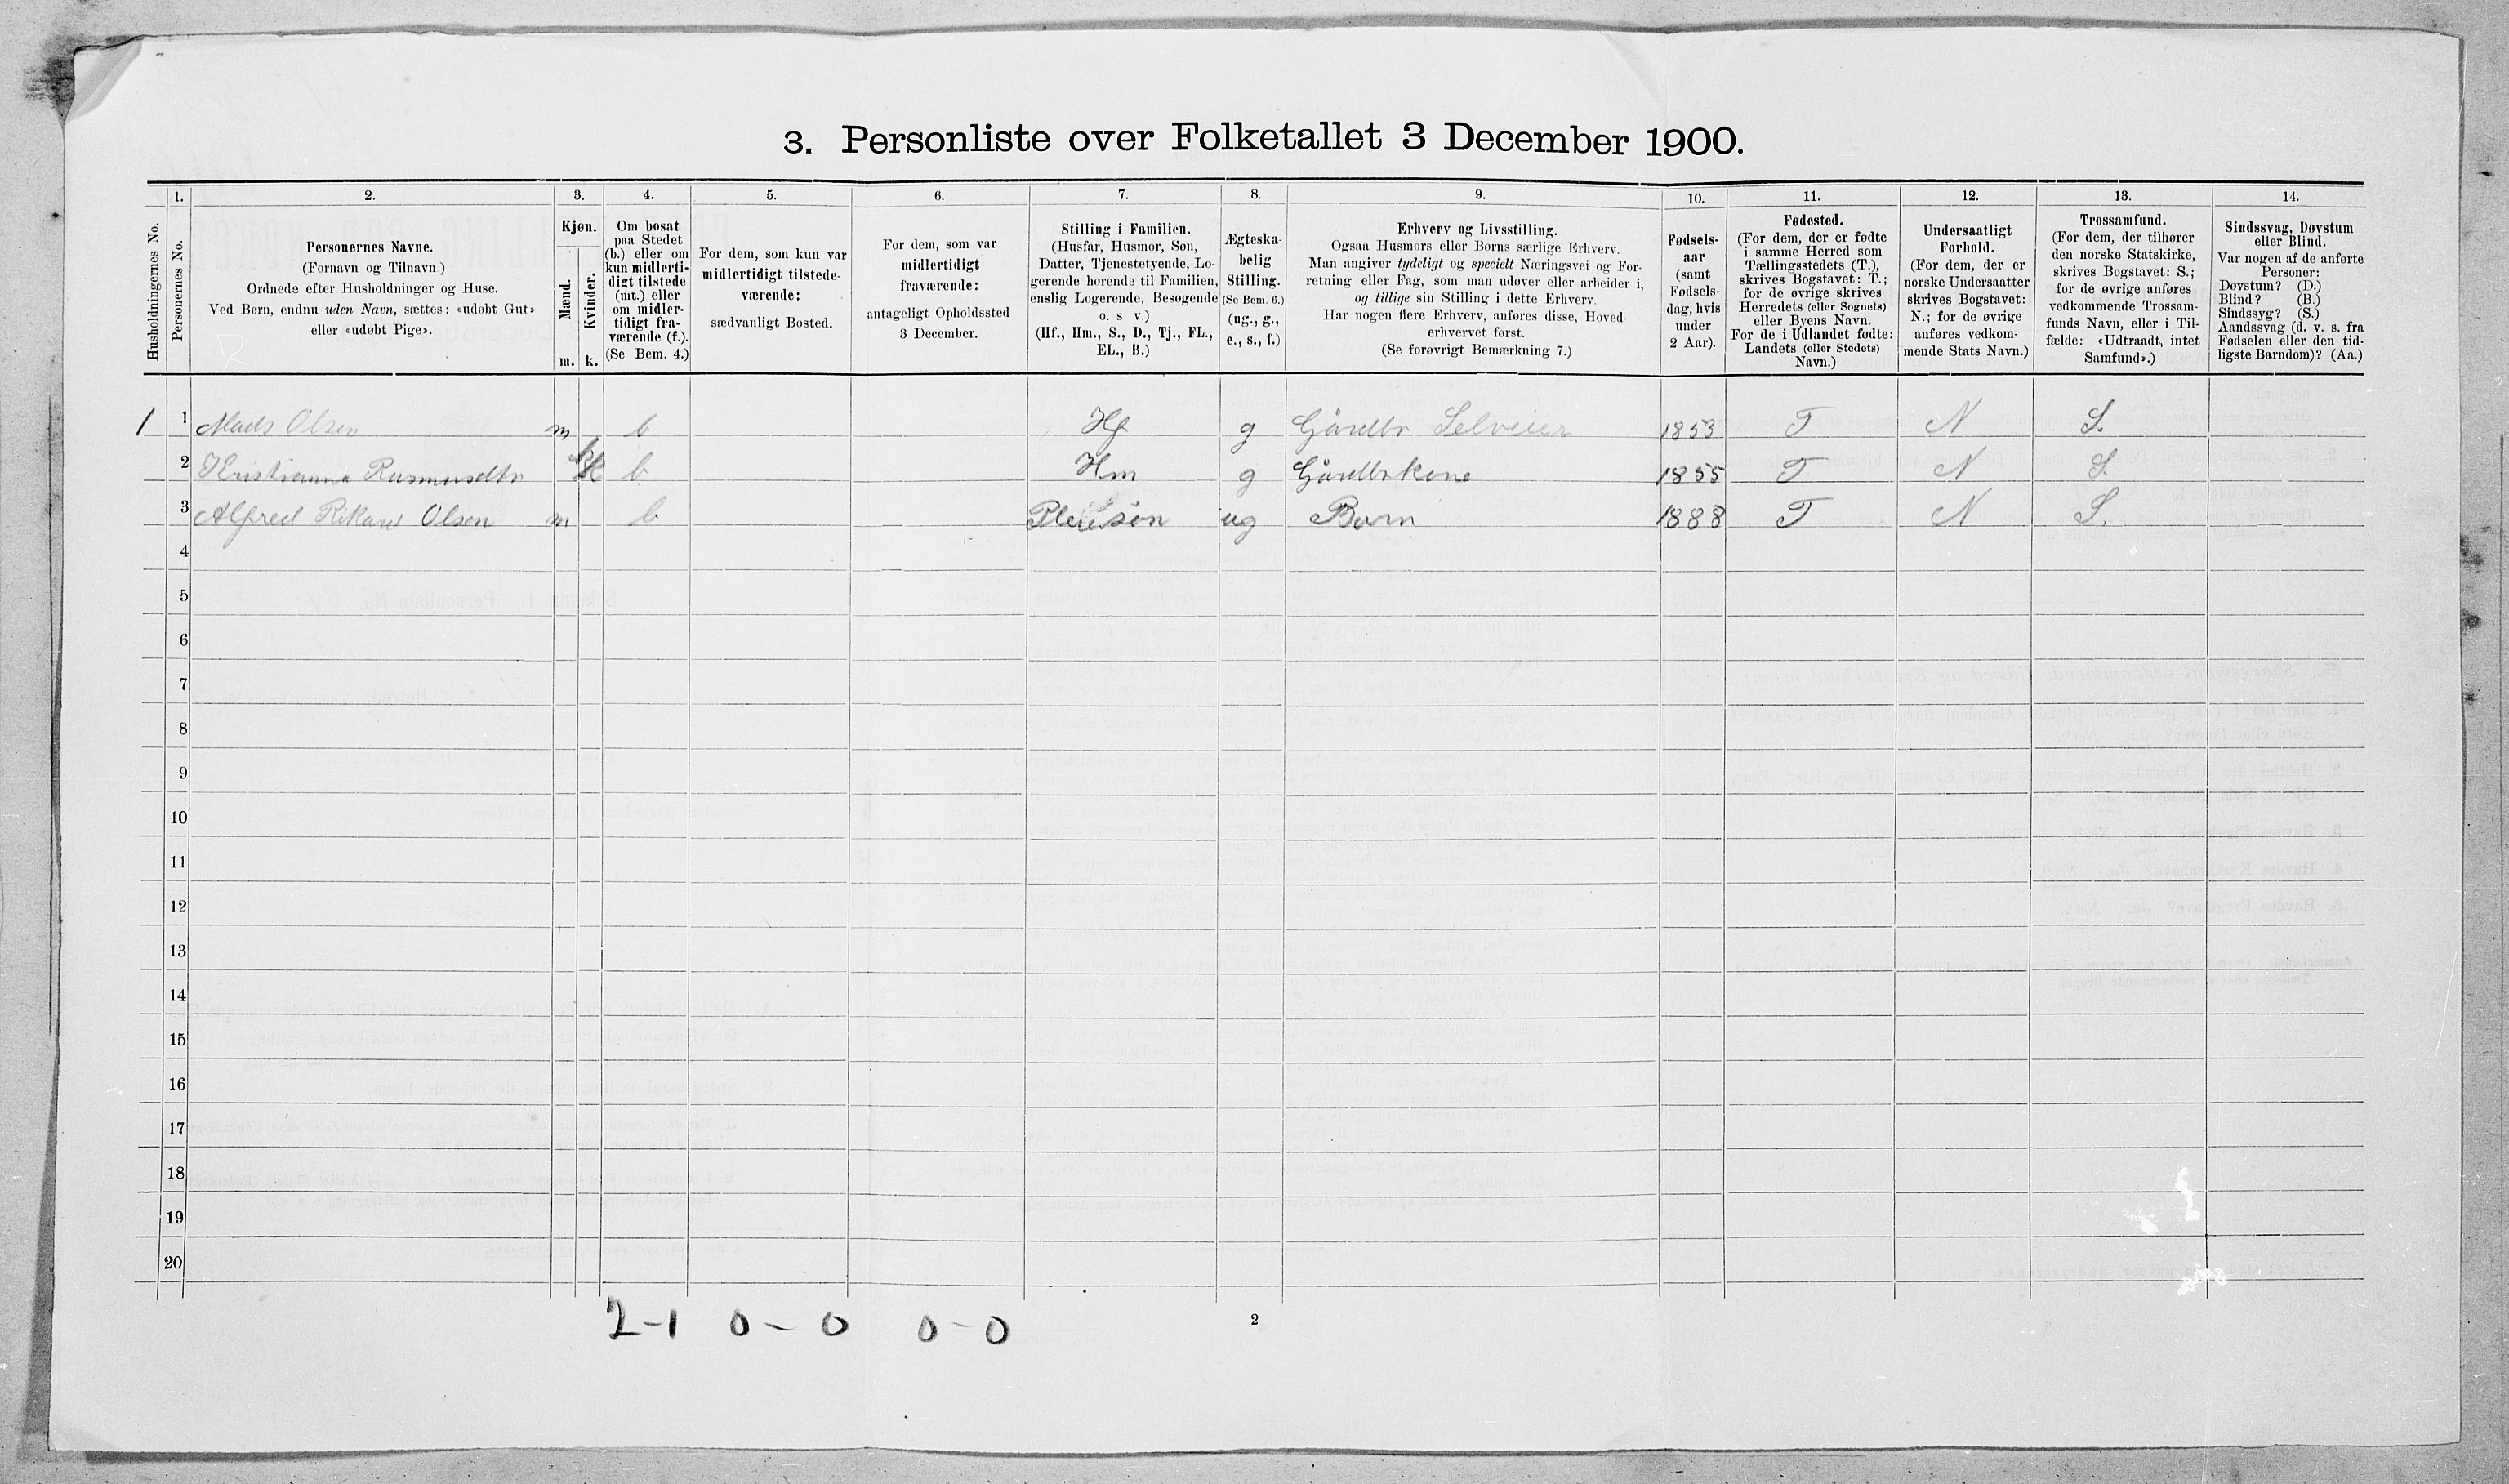 3. Personliste over Folketallet 3 December 1900.
1. 2. 3. 4. 5. 6. 7. 8. 9. 10. 11. 12. 13. 14.
Husholdningernes No.
Personernes No.
Personernes Navne.
(Fornavn og Tilnavn)
Ordnede efter Husholdninger og Huse.
Ved Børn, endnu uden Navn, sættes: «udøbt Gut»
eller «udøbt Pige».
Kjøn.
Mænd.
Kvinder.
m. k.
Om bosat
paa Stedet
(b.) eller om
kun midlerti-
digt tilstede
(mt.) eller
om midler-
tidigt fra-
værende (f.).
(Se Bem. 4.)
For dem, som kun var
midlertidigt tilstede-
værende:
sædvanligt Bosted.
For dem, som var
midlertidigt
fraværende:
antageligt Opholdssted
3 December.
Stilling i Familien.
(Husfar, Husmor, Søn,
Datter, Tjenestetyende, Lo-
gerende hørende til Familien,
enslig Logerende, Besøgende
o. s v.)
(Hf., Hm., S., D., Tj., FL.,
EL., B.)
Ægteska-
belig
Stilling.
(Se Bem. 6.)
(ug., g.,
e., s., f.)
Erhverv og Livsstilling.
Ogsaa Husmors eller Børns særlige Erhverv.
Man angiver tydeligt og specielt Næringsvei og For-
retning eller Fag, som man udøver eller arbeider i,
og tillige sin Stilling i dette Erhverv.
Har nogen flere Erhverv, anføres disse, Hoved-
erhvervet først.
(Se forøvrigt Bemærkning 7.)
Fødsels-
aar
(samt
Fødsels-
dag, hvis
under
2 Aar).
Fødested.
(For dem, der er fødte
i samme Herred som
Tællingsstedets (T.),
skrives Bogstavet: T.;
for de øvrige skrives
Herredets (eller Sognets)
eller Byens Navn.
For de i Udlandet fødte:
Landets (eller Stedets)
Navn.)
Undersaatligt
Forhold.
(For dem, der er
norske Undersaatter
skrives Bogstavet:
N.; for de øvrige
anføres vedkom-
mende Stats Navn.)
Trossamfund.
(For dem, der tilhører
den norske Statskirke,
skrives Bogstavet: S.;
for de øvrige anføres
vedkommende Trossam-
funds Navn, eller i Til-
fælde: «Udtraadt, intet
Samfund».)
Sindssvag, Døvstum
eller Blind.
Var nogen af de anførte
Personer:
Døvstum? (D.)
Blind? (B.)
Sindssyg? (S.)
Aandssvag (d. v. s. fra
Fødselen eller den tid-
ligste Barndom)? (Aa.)
1 1 Mads Olsen m b Hf g Gårdbr Selveier 1853 T N S.
2 Kristianna Rasmusdtr k b Hm g Gårdbrkone 1855 T N S.
3 Alfred Rikard Olsen m b Pleiesøn ug Barn 1888 T N S.
4
5
6
7
8
9
10
11
12
13
14
15
16
17
18
19
20
2-1 0-0 0-0
2